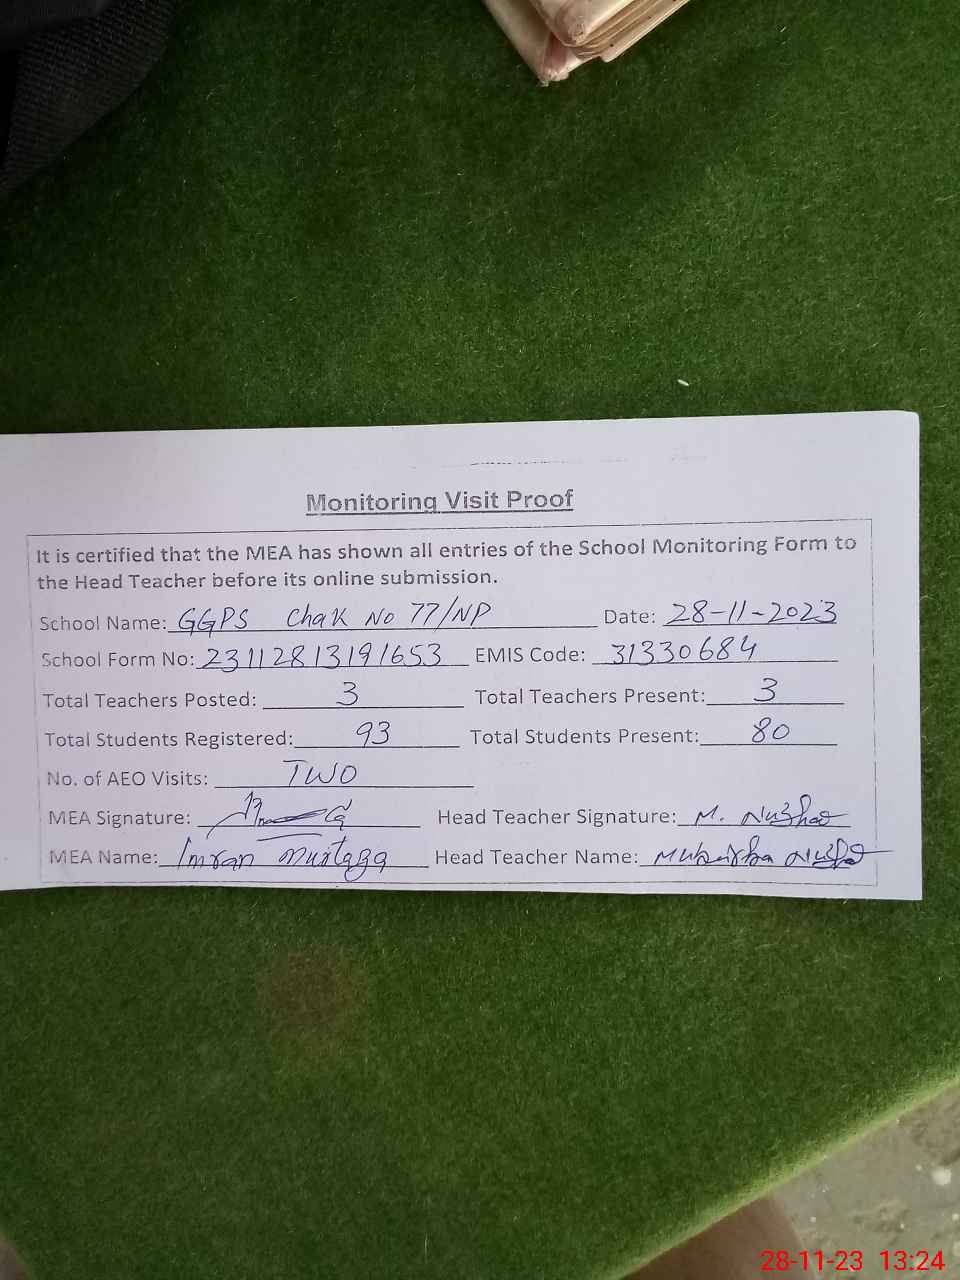 Monitoring Visit Proof
It is certified that the MEA has shown all entries of the School Monitoring Form to
the Head Teacher before its online submission.
School Name: GGPS Chak No 77/NP Date: 28-11-2023
School Form No: 23112813191653 EMIS Code: 31330684
Total Teachers Posted: 3 Total Teachers Present: 3
Total Students Registered: 93 Total Students Present: 80
No. of AEO Visits: TWO
MEA Signature: Head Teacher Signature: M. Nuzhat
MEA Name: Imran Murtaza Head Teacher Name: Nuzhat
28-11-23 13:24